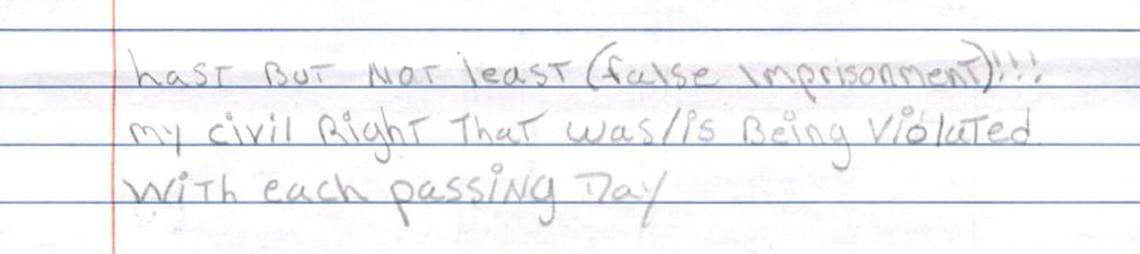 Last But Not least (false Imprisonment)!!!
my civil Right That was/is Being Violated
With each passing Day